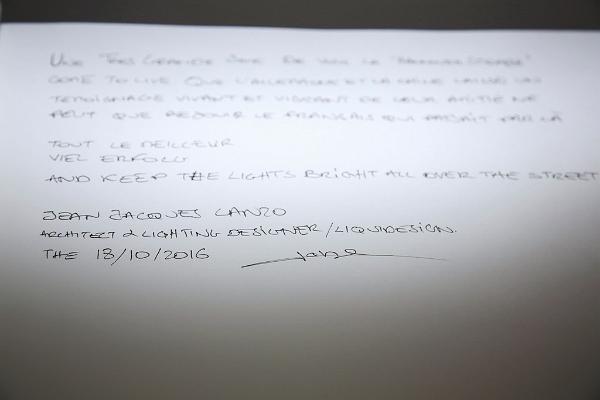 UNE TRES GRANDE JOIE DE VOIR LE "
COME TO LIVE QUE L'ALLEMAGNE ET LA CHINE
TEMOIGNAGE VIVANT ET VIBRANT DE LEUR AMITIE NE
PEUT QUE REJOUIR LE FRANCAIS QUI PASSAIT PAR LÀ
TOUT LE MEILLEUR
VIEL ERFOLG
AND KEEP THE LIGHTS BRIGHT ALL OVER THE STREET
JEAN JACQUES LANZO
ARCHITECT & LIGHTING DESIGNER/LIQUIDESIGN.
THE 18/10/2016